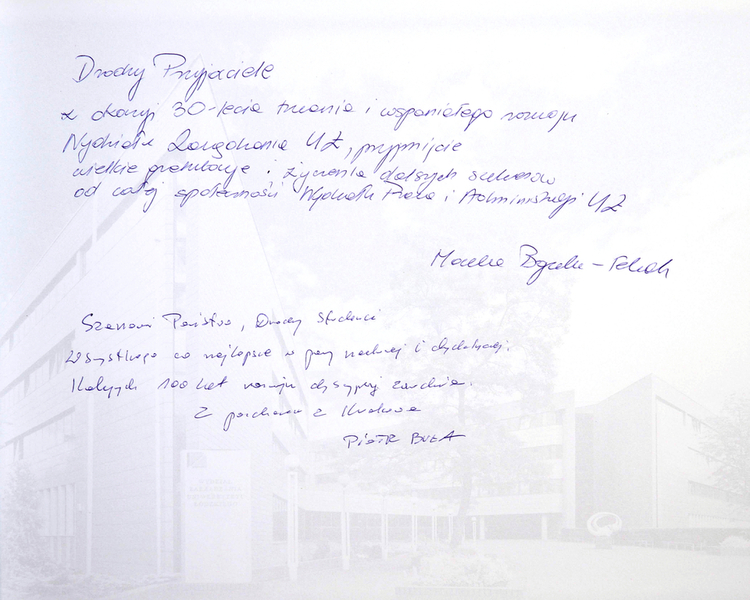 Drodzy Przyjaciele
z okazji 30-lecia trwania i wspaniałego rozwoju
Wydziału Zarządzania UŁ, przyjmijcie
wielkie gratulacje i życzenia dalszych sukcesów
od całej społeczności Wydziału Prawa i Administracji UŁ
Monika
Szanowni Państwo, Drodzy Studenci
Wszystkiego co najlepsze w pracy naukowej i dydaktycznej.
Kolejnych 100 lat rozwoju dyscypliny zarządzania.
Z Krakowa
PIOTR BUŁA
WYDZIAŁ
ZARZĄDZANIA